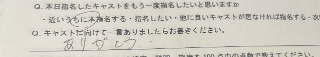 Q. 本日指名したキャストをもう一度指名したいと思いますか
・近いうちに本指名する・指名したい・他に良いキャストが居なければ指名する・次
Q. キャストに向けて一言ありましたらお書きください。
ありがとう
100点中の点数で教えてください。